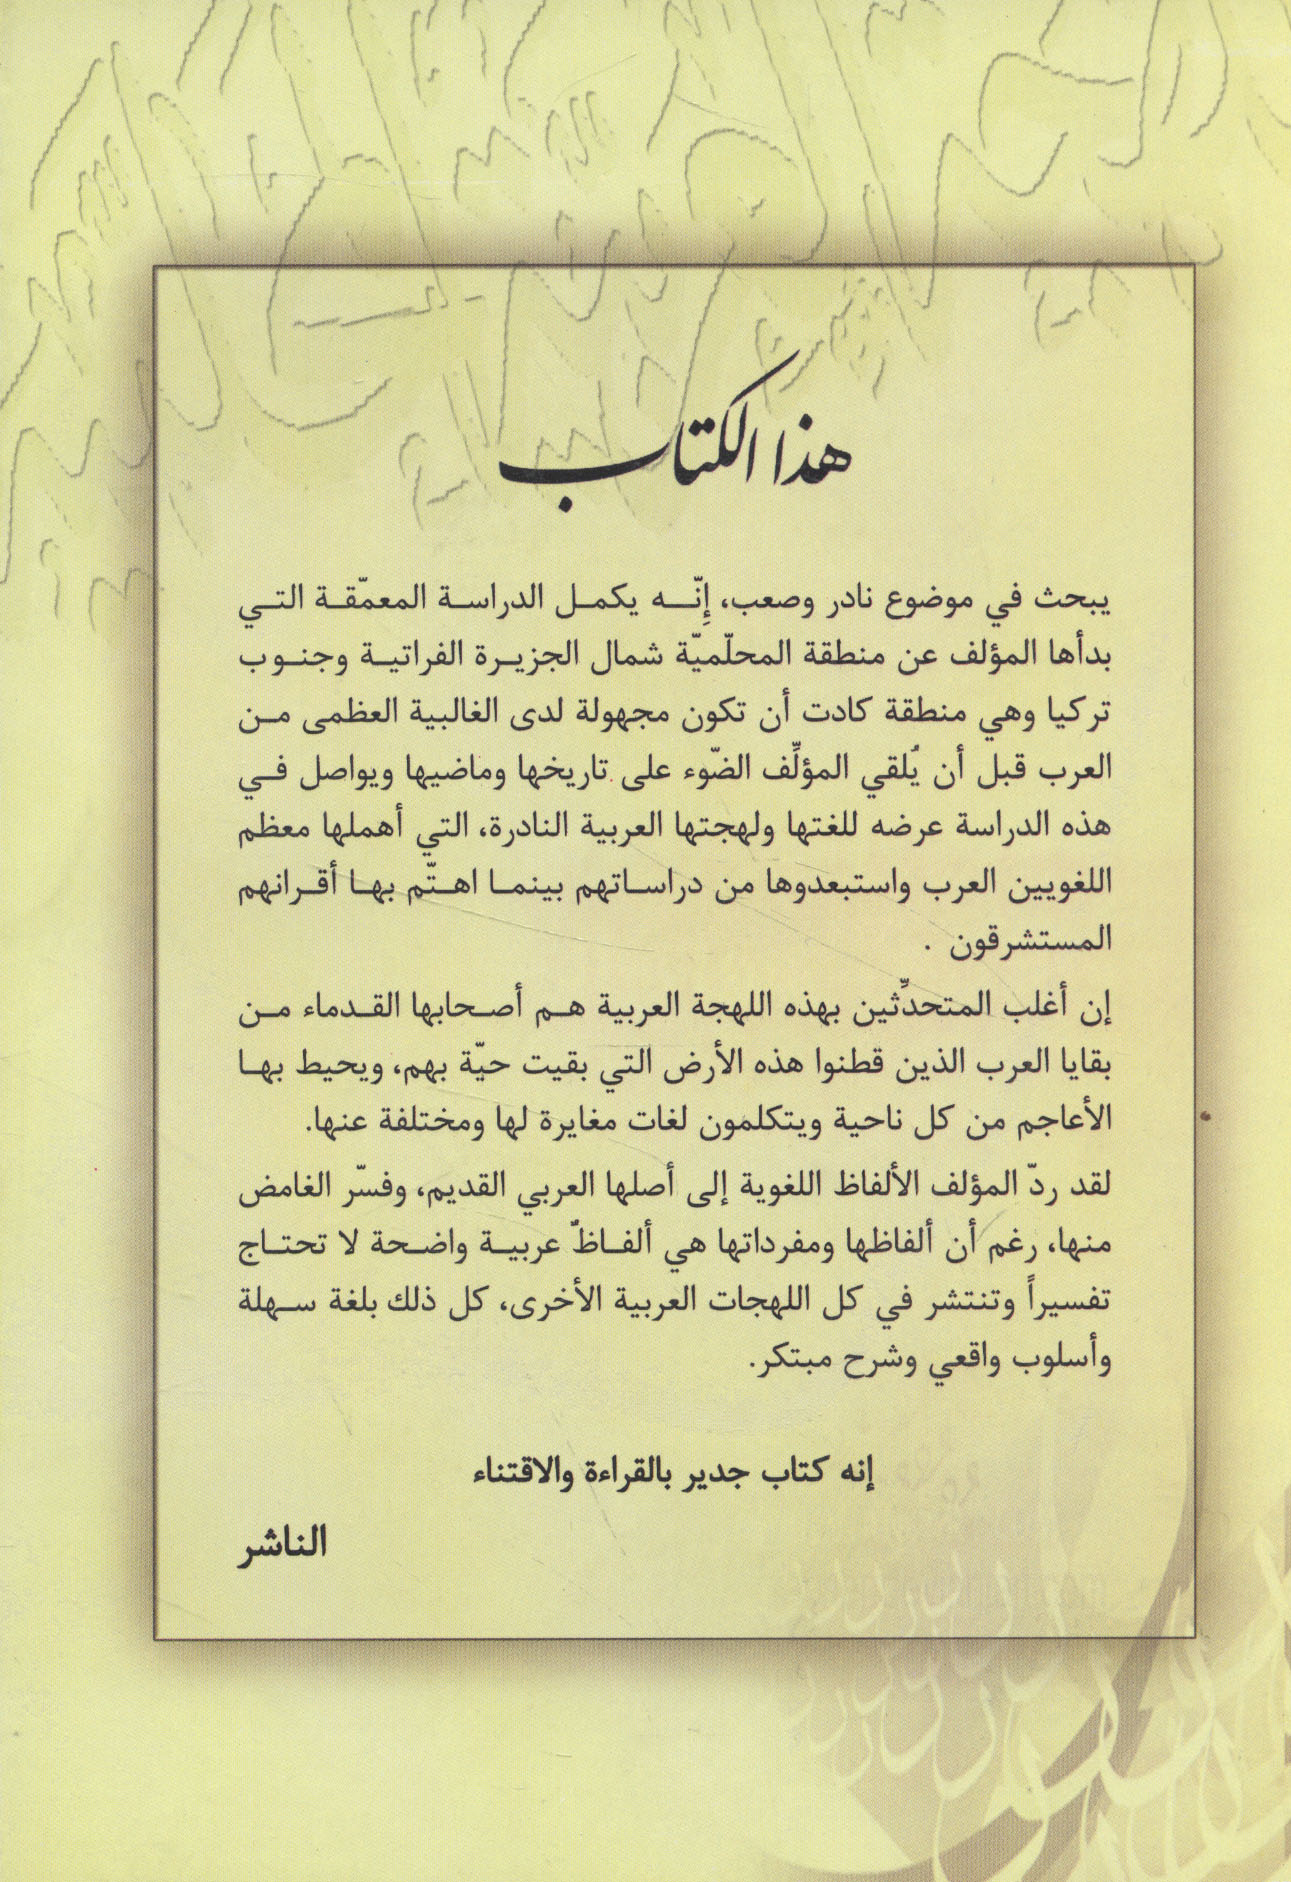 هذا الكتاب
يبحث في موضوع نادر وصعب، إِنّه يكمل الدراسة المعمّقة التي
بدأها المؤلف عن منطقة المحلّميّة شمال الجزيرة الفراتية وجنوب
تركيا وهي منطقة كادت أن تكون مجهولة لدى الغالبية العظمى من
العرب قبل أن يُلقي المؤلِّف الضّوء على تاريخها وماضيها ويواصل في
هذه الدراسة عرضه للغتها ولهجتها العربية النادرة، التي أهملها معظم
اللغويين العرب واستبعدوها من دراساتهم بينما اهتّم بها أقرانهم
المستشرقون .
إن أغلب المتحدِّثين بهذه اللهجة العربية هم أصحابها القدماء من
بقايا العرب الذين قطنوا هذه الأرض التي بقيت حيّة بهم، ويحيط بها
الأعاجم من كل ناحية ويتكلمون لغات مغايرة لها ومختلفة عنها.
لقد ردّ المؤلف الألفاظ اللغوية إلى أصلها العربي القديم، وفسّر الغامض
منها، رغم أن ألفاظها ومفرداتها هي ألفاظٌ عربية واضحة لا تحتاج
تفسيراً وتنتشر في كل اللهجات العربية الأخرى، كل ذلك بلغة سهلة
وأسلوب واقعي وشرح مبتكر.
إنه كتاب جدير بالقراءة والاقتناء
الناشر